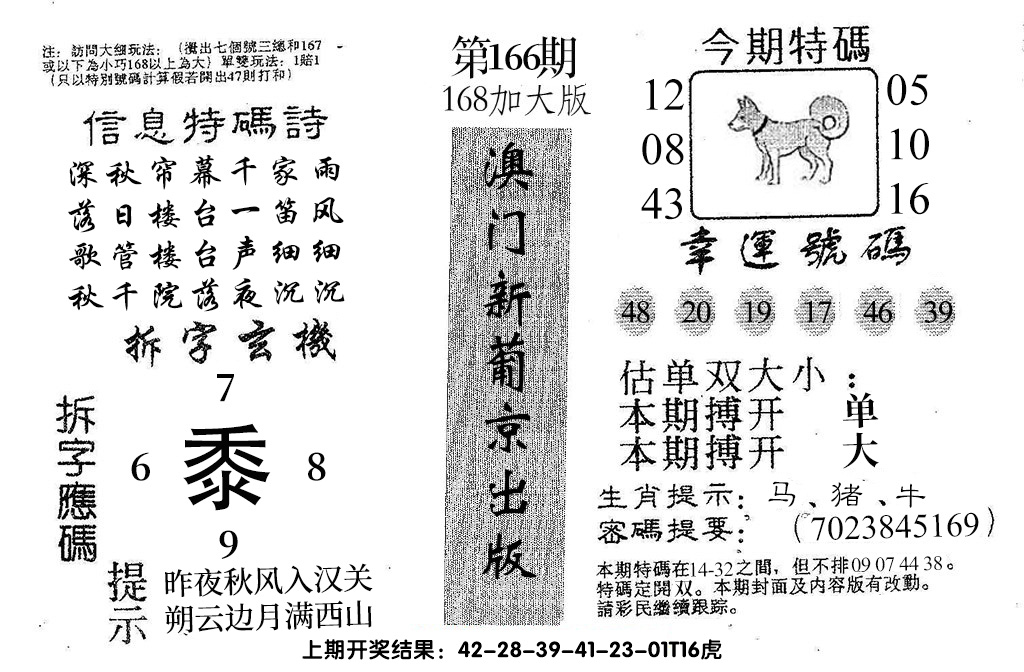 注：訪問大细玩法：（攪出七個號三總和167
或以下為小巧168以上為大）單雙玩法：1賠1
（只以特別號碼計算假若開出47則打和）
信息特碼詩
深秋帘幕千家雨
落日楼台一笛风
歌管楼台声细细
秋千院落夜沉沉
拆字玄機
拆字應碼
7
6 黍 8
9
提示
昨夜秋风入汉关
朔云边月满西山
第166期
168加大版
澳门新葡京出版
今期特碼
12 05
08 10
43 16
幸運號碼
48 20 19 17 46 39
估单双大小：
本期搏开 单
本期搏开 大
生肖提示：马、猪、牛
密碼提要：（7023845169）
本期特碼在14-32之間，但不排09 07 44 38。
特碼定開双。本期封面及内容版有改動。
請彩民繼續跟踪。
上期开奖结果：42-28-39-41-23-01T16虎